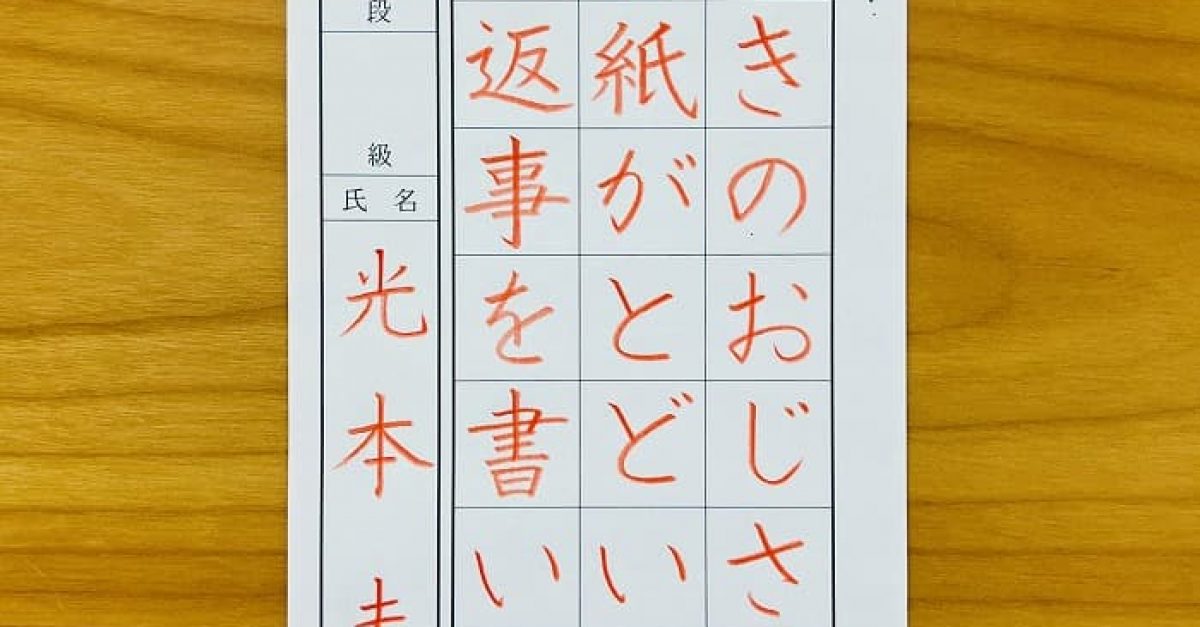 きのおじさ
紙がとどい
返事を書い
段
級
氏 名
光本